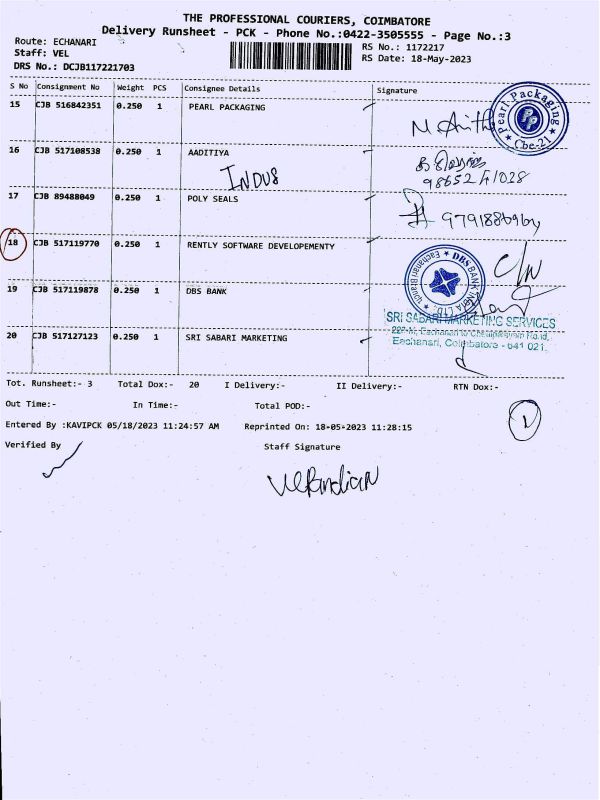 THE PROFESSIONAL COURIERS, COIMBATORE
Delivery Runsheet - PCK - Phone No.:0422-3505555 - Page No.:3
Route: ECHANARI
RS No.: 1172217
Staff: VEL
RS Date: 18-May-2023
DRS No.: DCJB117221703
S No Consignment No Weight PCS Consignee Details Signature
15 CJB 516842351 0.250 1 PEARL PACKAGING
Pearl Packaging
PP
Cbe-21
16 CJB 517108538 0.250 1 AADITIYA
INDUS
17 CJB 89488049 0.250 1 POLY SEALS
18 CJB 517119770 0.250 1 RENTLY SOFTWARE DEVELOPEMENTY
DBS BANK INDIA LTD.
19 CJB 517119878 0.250 1 DBS BANK
SRI SABARI MARKETING SERVICES
Eachanari, Coimbatore - 641 021.
20 CJB 517127123 0.250 1 SRI SABARI MARKETING
Tot. Runsheet:- 3 Total Dox:- 20 I Delivery:- II Delivery:- RTN Dox:-
Out Time:- In Time:- Total POD:-
Entered By :KAVIPCK 05/18/2023 11:24:57 AM Reprinted On: 18-05-2023 11:28:15
Verified By Staff Signature